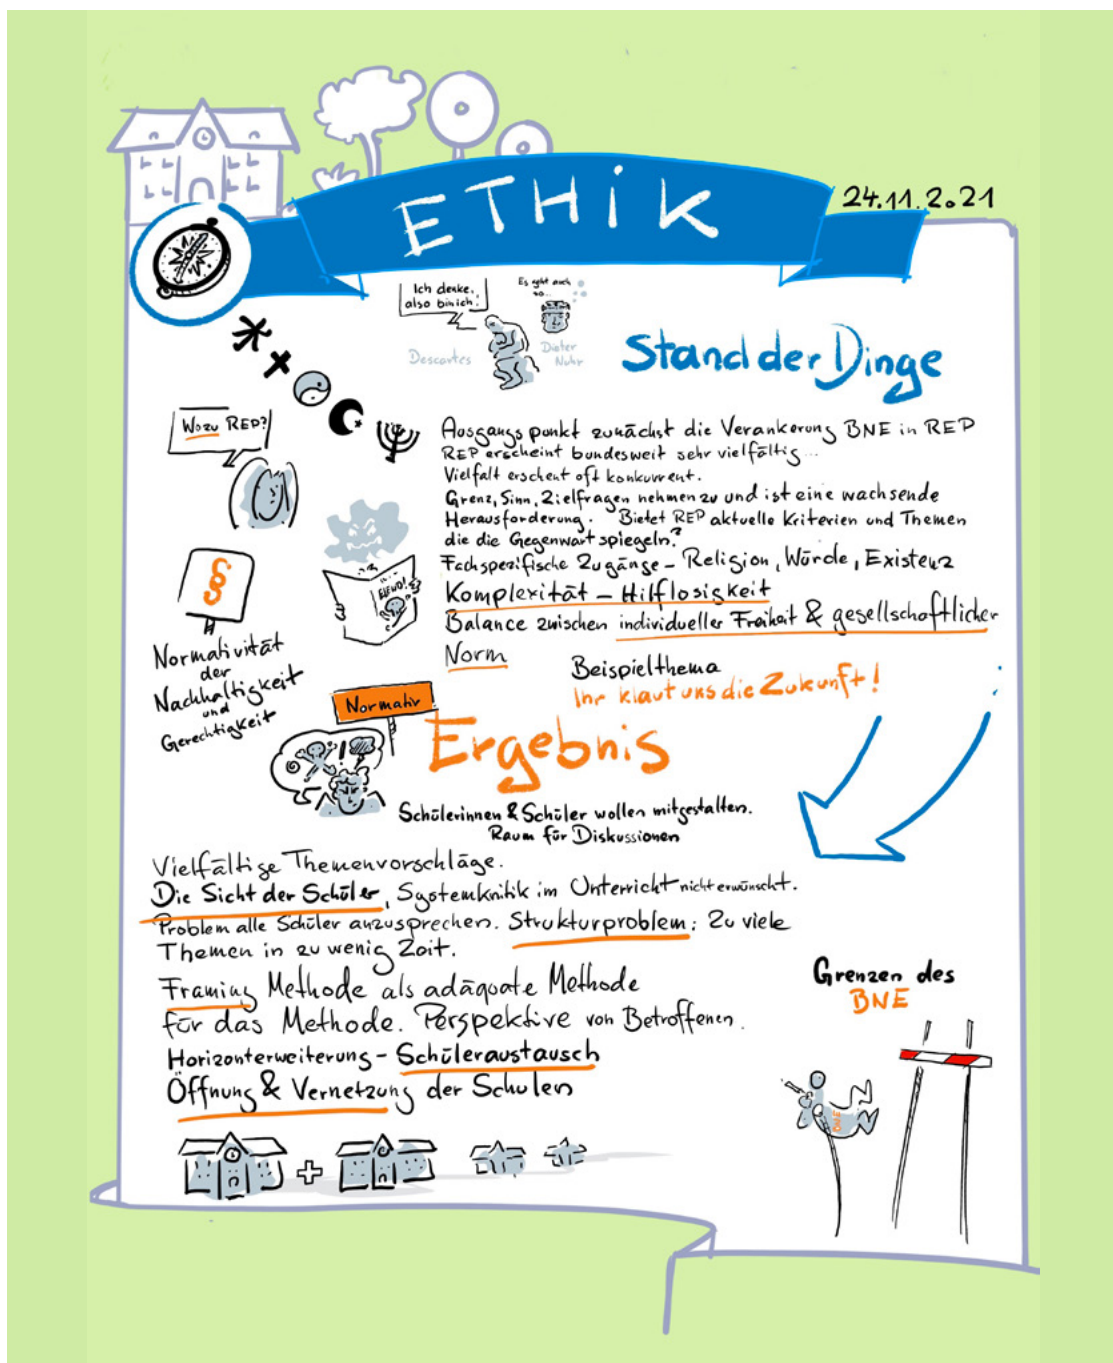 ETHiK
24.11.2021
Ich denke,
also bin ich!
Es geht auch
so...
Descartes
Dieter
Nuhr
Stand der Dinge
Wozu REP?
Ausgangspunkt zunächst die Verankerung BNE in REP
REP erscheint bundesweit sehr vielfältig...
Vielfalt erscheint oft konkurrent.
Grenz, Sinn, Zielfragen nehmen zu und ist eine wachsende
Herausforderung. Bietet REP aktuelle Kriterien und Themen
die die Gegenwart spiegeln?
Fachspezifische Zugänge - Religion, Würde, Existenz
Komplexität - Hilflosigkeit
Balance zwischen individueller Freiheit & gesellschaftlicher
Norm
§
ELEND!
Normativität
der
Nachhaltigkeit
und
Gerechtigkeit
Beispielthema
Ihr klaut uns die Zukunft!
Normativ
Ergebnis
Schülerinnen & Schüler wollen mitgestalten.
Raum für Diskussionen
Vielfältige Themenvorschläge.
Die Sicht der Schüler, Systemkritik im Unterricht nicht erwünscht.
Problem alle Schüler anzusprechen. Strukturproblem: Zu viele
Themen in zu wenig Zeit.
Framing Methode als adäquate Methode
für das Methode. Perspektive von Betroffenen.
Horizonterweiterung - Schüleraustausch
Öffnung & Vernetzung der Schulen
Grenzen des
BNE
BNE